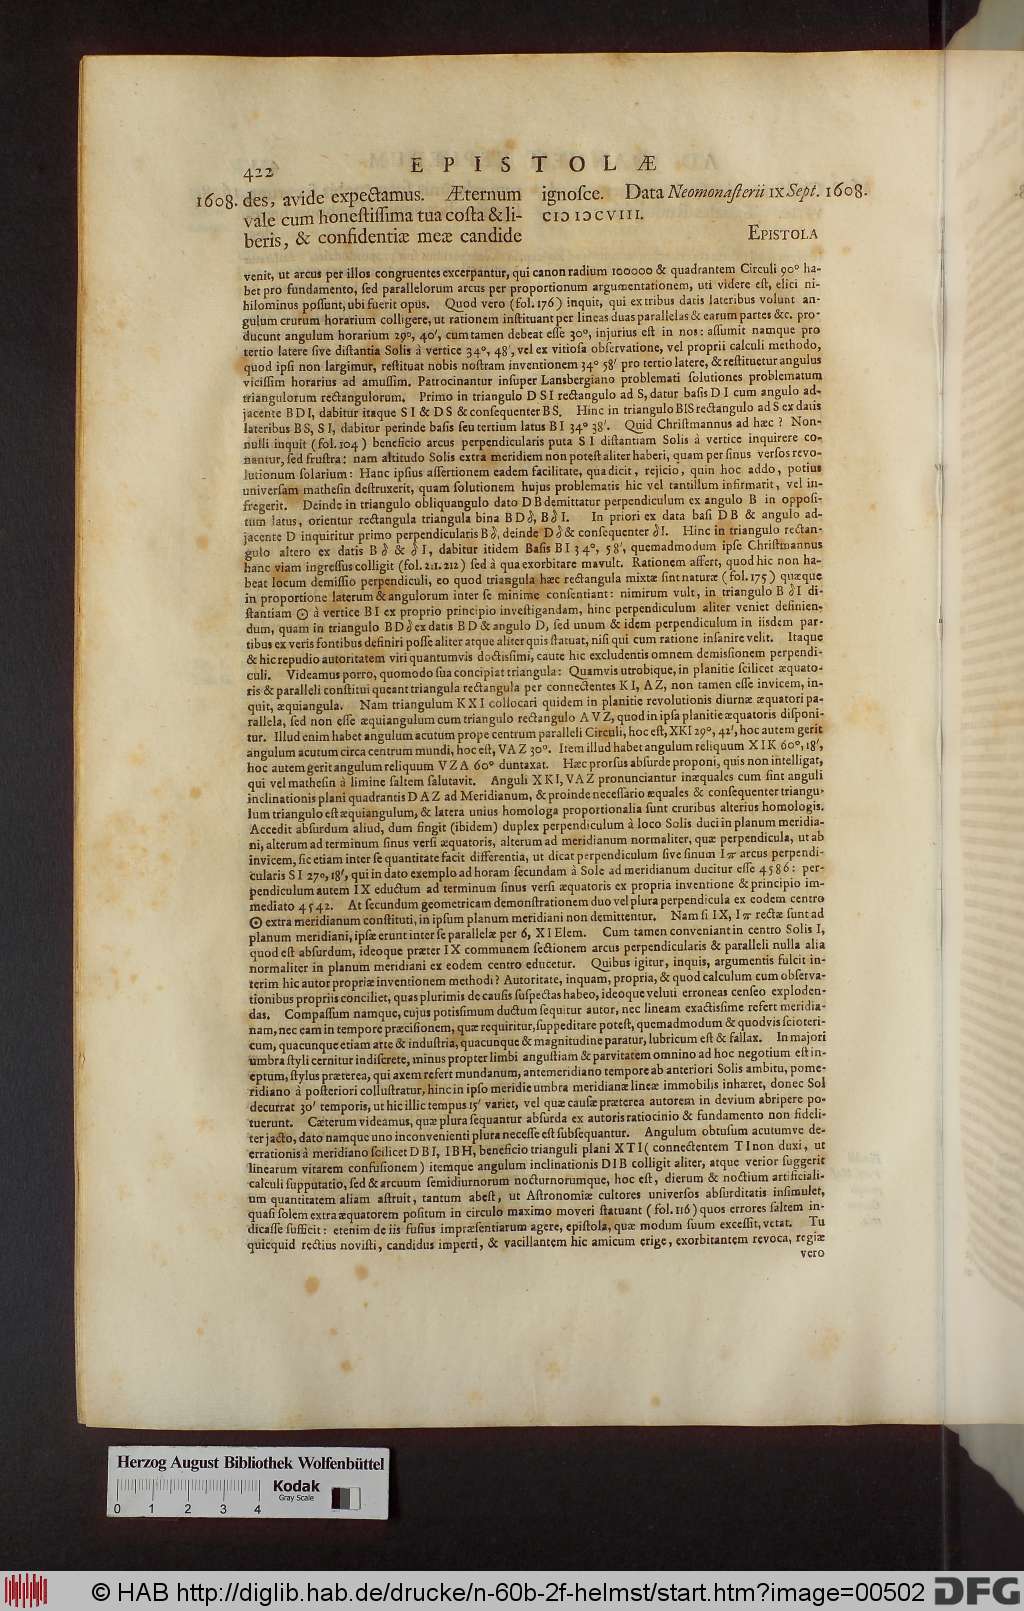 422
EPISTOLÆ
1608. des, avide expectamus. Æternum
vale cum honeſtiſſima tua coſta & li-
beris, & confidentiæ meæ candide
ignoſce. Data Neomonaſterii IX Sept. 1608.
CIↃ IↃCVIII.
EPISTOLA
venit, ut arcus per illos congruentes excerpantur, qui canon radium 100000 & quadrantem Circuli 90° ha-
bet pro fundamento, ſed parallelorum arcus per proportionum argumentationem, uti videre eſt, elici ni-
hilominus poſſunt, ubi fuerit opus. Quod vero (fol. 176) inquit, qui ex tribus datis lateribus volunt an-
gulum crurum horarium colligere, ut rationem inſtituant per lineas duas parallelas & earum partes &c. pro-
ducunt angulum horarium 29°, 40′, cum tamen debeat eſſe 30°, injurius eſt in nos: aſſumit namque pro
tertio latere ſive diſtantia Solis à vertice 34°, 48′, vel ex vitioſa obſervatione, vel proprii calculi methodo,
quod ipſi non largimur, reſtituat nobis noſtram inventionem 34° 58′ pro tertio latere, & reſtituetur angulus
viciſſim horarius ad amuſſim. Patrocinantur inſuper Lansbergiano problemati ſolutiones problematum
triangulorum rectangulorum. Primo in triangulo D S I rectangulo ad S, datur baſis D I cum angulo ad-
jacente B D I, dabitur itaque S I & D S & conſequenter B S. Hinc in triangulo B I S rectangulo ad S ex datis
lateribus B S, S I, dabitur perinde baſis ſeu tertium latus B I 34° 38′. Quid Chriſtmannus ad hæc? Non-
nulli inquit (fol. 104) beneficio arcus perpendicularis puta S I diſtantiam Solis à vertice inquirere co-
nantur, ſed fruſtra: nam altitudo Solis extra meridiem non poteſt aliter haberi, quam per ſinus verſos revo-
lutionum ſolarium: Hanc ipſius aſſertionem eadem facilitate, qua dicit, rejicio, quin hoc addo, potius
univerſam matheſin deſtruxerit, quam ſolutionem hujus problematis hic vel tantillum infirmarit, vel in-
fregerit. Deinde in triangulo obliquangulo dato D B demittatur perpendiculum ex angulo B in oppoſi-
tum latus, orientur rectangula triangula bina B D δ, B δ I. In priori ex data baſi D B & angulo ad-
jacente D inquiritur primo perpendicularis B δ, deinde D δ & conſequenter δ I. Hinc in triangulo rectan-
gulo altero ex datis B δ & δ I, dabitur itidem Baſis B I 34°, 58′, quemadmodum ipſe Chriſtmannus
hanc viam ingreſſus colligit (fol. 211. 212) ſed à qua exorbitare mavult. Rationem affert, quod hic non ha-
beat locum demiſſio perpendiculi, eo quod triangula hæc rectangula mixtæ ſint naturæ (fol. 175) quæque
in proportione laterum & angulorum inter ſe minime conſentiant: nimirum vult, in triangulo B δ I di-
ſtantiam ☉ à vertice B I ex proprio principio inveſtigandam, hinc perpendiculum aliter veniet definien-
dum, quam in triangulo B D δ ex datis B D & angulo D, ſed unum & idem perpendiculum in iisdem par-
tibus ex veris fontibus definiri poſſe aliter atque aliter quis ſtatuat, niſi qui cum ratione inſanire velit. Itaque
& hic repudio autoritatem viri quantumvis doctiſſimi, caute hic excludentis omnem demiſſionem perpendi-
culi. Videamus porro, quomodo ſua concipiat triangula: Quamvis utrobique, in planitie ſcilicet æquato-
ris & paralleli conſtitui queant triangula rectangula per connectentes K I, A Z, non tamen eſſe invicem, in-
quit, æquiangula. Nam triangulum K X I collocari quidem in planitie revolutionis diurnæ æquatori pa-
rallela, ſed non eſſe æquiangulum cum triangulo rectangulo A V Z, quod in ipſa planitie æquatoris diſponi-
tur. Illud enim habet angulum acutum prope centrum paralleli Circuli, hoc eſt, X K I 29°, 42′, hoc autem gerit
angulum acutum circa centrum mundi, hoc eſt, V A Z 30°. Item illud habet angulum reliquum X I K 60°, 18′,
hoc autem gerit angulum reliquum V Z A 60° duntaxat. Hæc prorſus abſurde proponi, quis non intelligat,
qui vel matheſin à limine ſaltem ſalutavit. Anguli X K I, V A Z pronunciantur inæquales cum ſint anguli
inclinationis plani quadrantis D A Z ad Meridianum, & proinde neceſſario æquales & conſequenter triangu-
lum triangulo eſt æquiangulum, & latera unius homologa proportionalia ſunt cruribus alterius homologis.
Accedit abſurdum aliud, dum fingit (ibidem) duplex perpendiculum à loco Solis duci in planum meridia-
ni, alterum ad terminum ſinus verſi æquatoris, alterum ad meridianum normaliter, quæ perpendicula, ut ab
invicem, ſic etiam inter ſe quantitate facit differentia, ut dicat perpendiculum ſive ſinum I π arcus perpendi-
cularis S I 27°, 18′, qui in dato exemplo ad horam ſecundam à Sole ad meridianum ducitur eſſe 4586: per-
pendiculum autem I X eductum ad terminum ſinus verſi æquatoris ex propria inventione & principio im-
mediato 4542. At ſecundum geometricam demonſtrationem duo vel plura perpendicula ex eodem centro
☉ extra meridianum conſtituti, in ipſum planum meridiani non demittentur. Nam ſi I X, I π rectæ ſunt ad
planum meridiani, ipſæ erunt inter ſe parallelæ per 6, XI Elem. Cum tamen conveniant in centro Solis I,
quod eſt abſurdum, ideoque præter I X communem ſectionem arcus perpendicularis & paralleli nulla alia
normaliter in planum meridiani ex eodem centro educetur. Quibus igitur, inquis, argumentis fulcit in-
terim hic autor propriæ inventionem methodi? Autoritate, inquam, propria, & quod calculum cum obſerva-
tionibus propriis conciliet, quas plurimis de cauſis ſuſpectas habeo, ideoque veluti erroneas cenſeo exploden-
das. Compaſſum namque, cujus potiſſimum ductum ſequitur autor, nec lineam exactiſſime refert meridia-
nam, nec eam in tempore præciſionem, quæ requiritur, ſuppeditare poteſt, quemadmodum & quodvis ſcioteri-
cum, quacunque etiam arte & induſtria, quacunque & magnitudine paratur, lubricum eſt & fallax. In majori
umbra ſtyli cernitur indiſcrete, minus propter limbi anguſtiam & parvitatem omnino ad hoc negotium eſt in-
eptum, ſtylus præterea, qui axem refert mundanum, antemeridiano tempore ab anteriori Solis ambitu, pome-
ridiano à poſteriori colluſtratur, hinc in ipſo meridie umbra meridianæ lineæ immobilis inhæret, donec Sol
decurrat 30′ temporis, ut hic illic tempus 15′ variet, vel quæ cauſæ præterea autorem in devium abripere po-
tuerunt. Cæterum videamus, quæ plura ſequantur abſurda ex autoris ratiocinio & fundamento non fideli-
ter jacto, dato namque uno inconvenienti plura neceſſe eſt ſubſequantur. Angulum obtuſum acutumve de-
errationis à meridiano ſcilicet D B I, I B H, beneficio trianguli plani X T I (connectentem T I non duxi, ut
linearum vitarem confuſionem) itemque angulum inclinationis D I B colligit aliter, atque verior ſuggerit
calculi ſupputatio, ſed & arcuum ſemidiurnorum nocturnorumque, hoc eſt, dierum & noctium artificiali-
um quantitatem aliam aſtruit, tantum abeſt, ut Aſtronomiæ cultores univerſos abſurditatis inſimulet,
quaſi ſolem extra æquatorem poſitum in circulo maximo moveri ſtatuant (fol. 116) quos errores ſaltem in-
dicaſſe ſufficit: etenim de iis fuſius impræſentiarum agere, epiſtola, quæ modum ſuum exceſſit, vetat. Tu
quicquid rectius noviſti, candidus imperti, & vacillantem hic amicum erige, exorbitantem revoca, regiæ
vero
Herzog August Bibliothek Wolfenbüttel
Kodak
Gray Scale
0 1 2 3 4
© HAB http://diglib.hab.de/drucke/n-60b-2f-helmst/start.htm?image=00502
DFG